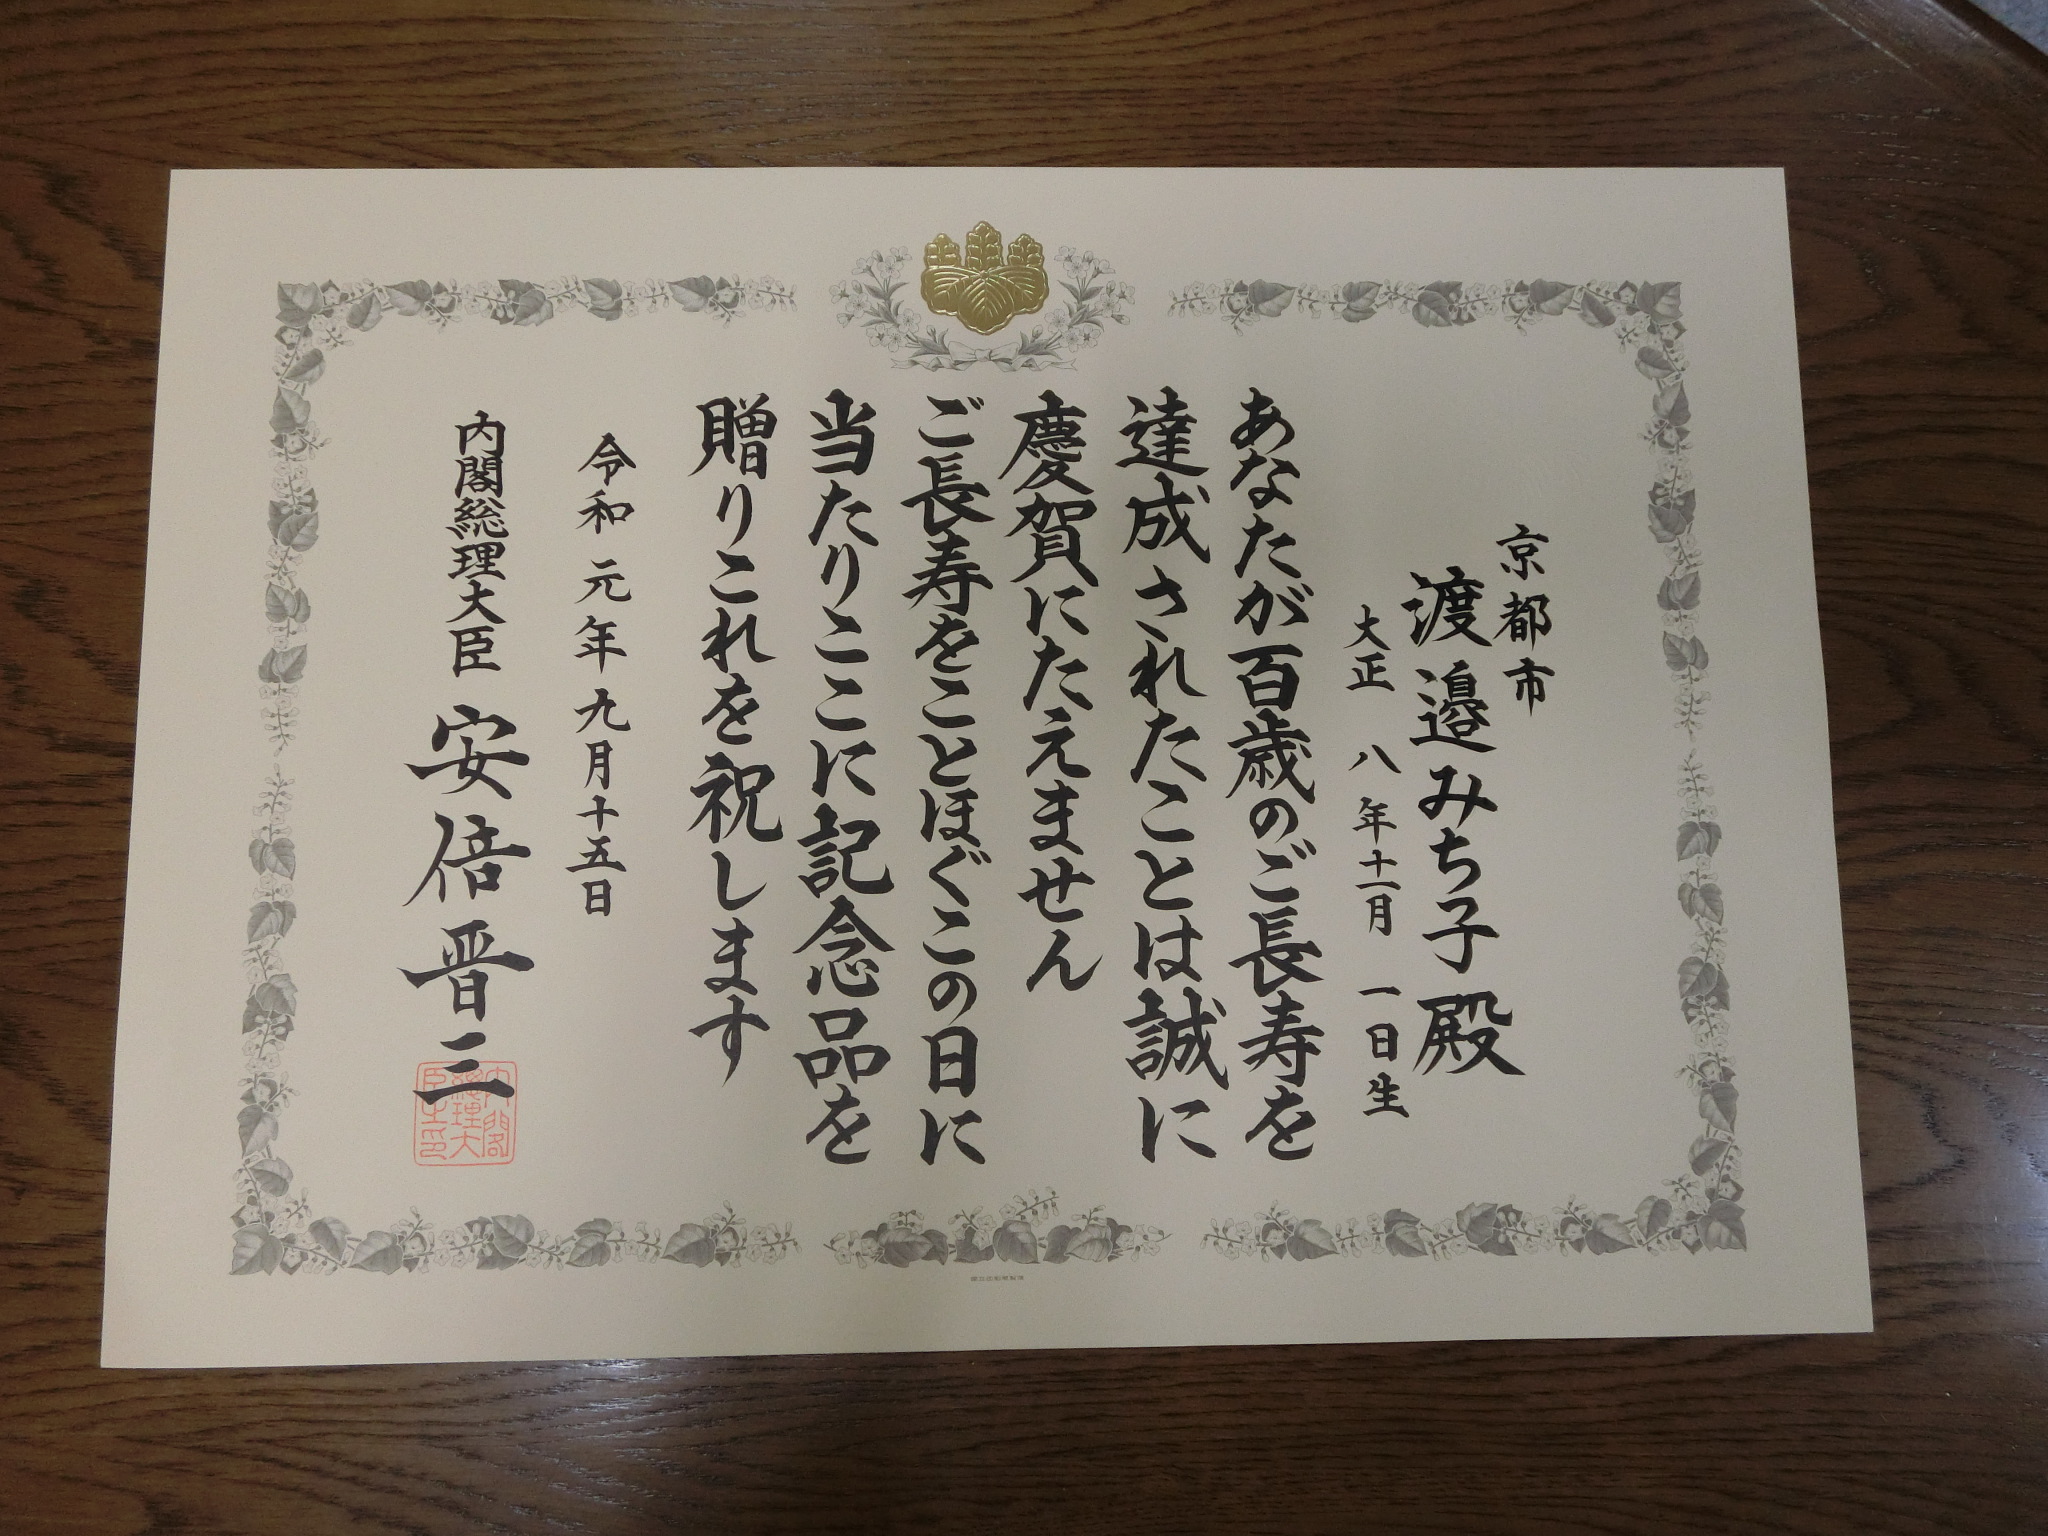 京都市
渡邉みち子殿
大正八年十一月一日生
あなたが百歳のご長寿を
達成されたことは誠に
慶賀にたえません
ご長寿をことほぐこの日に
当たりここに記念品を
贈りこれを祝します
令和元年九月十五日
内閣総理大臣 安倍晋三
内閣
總理大
臣之印